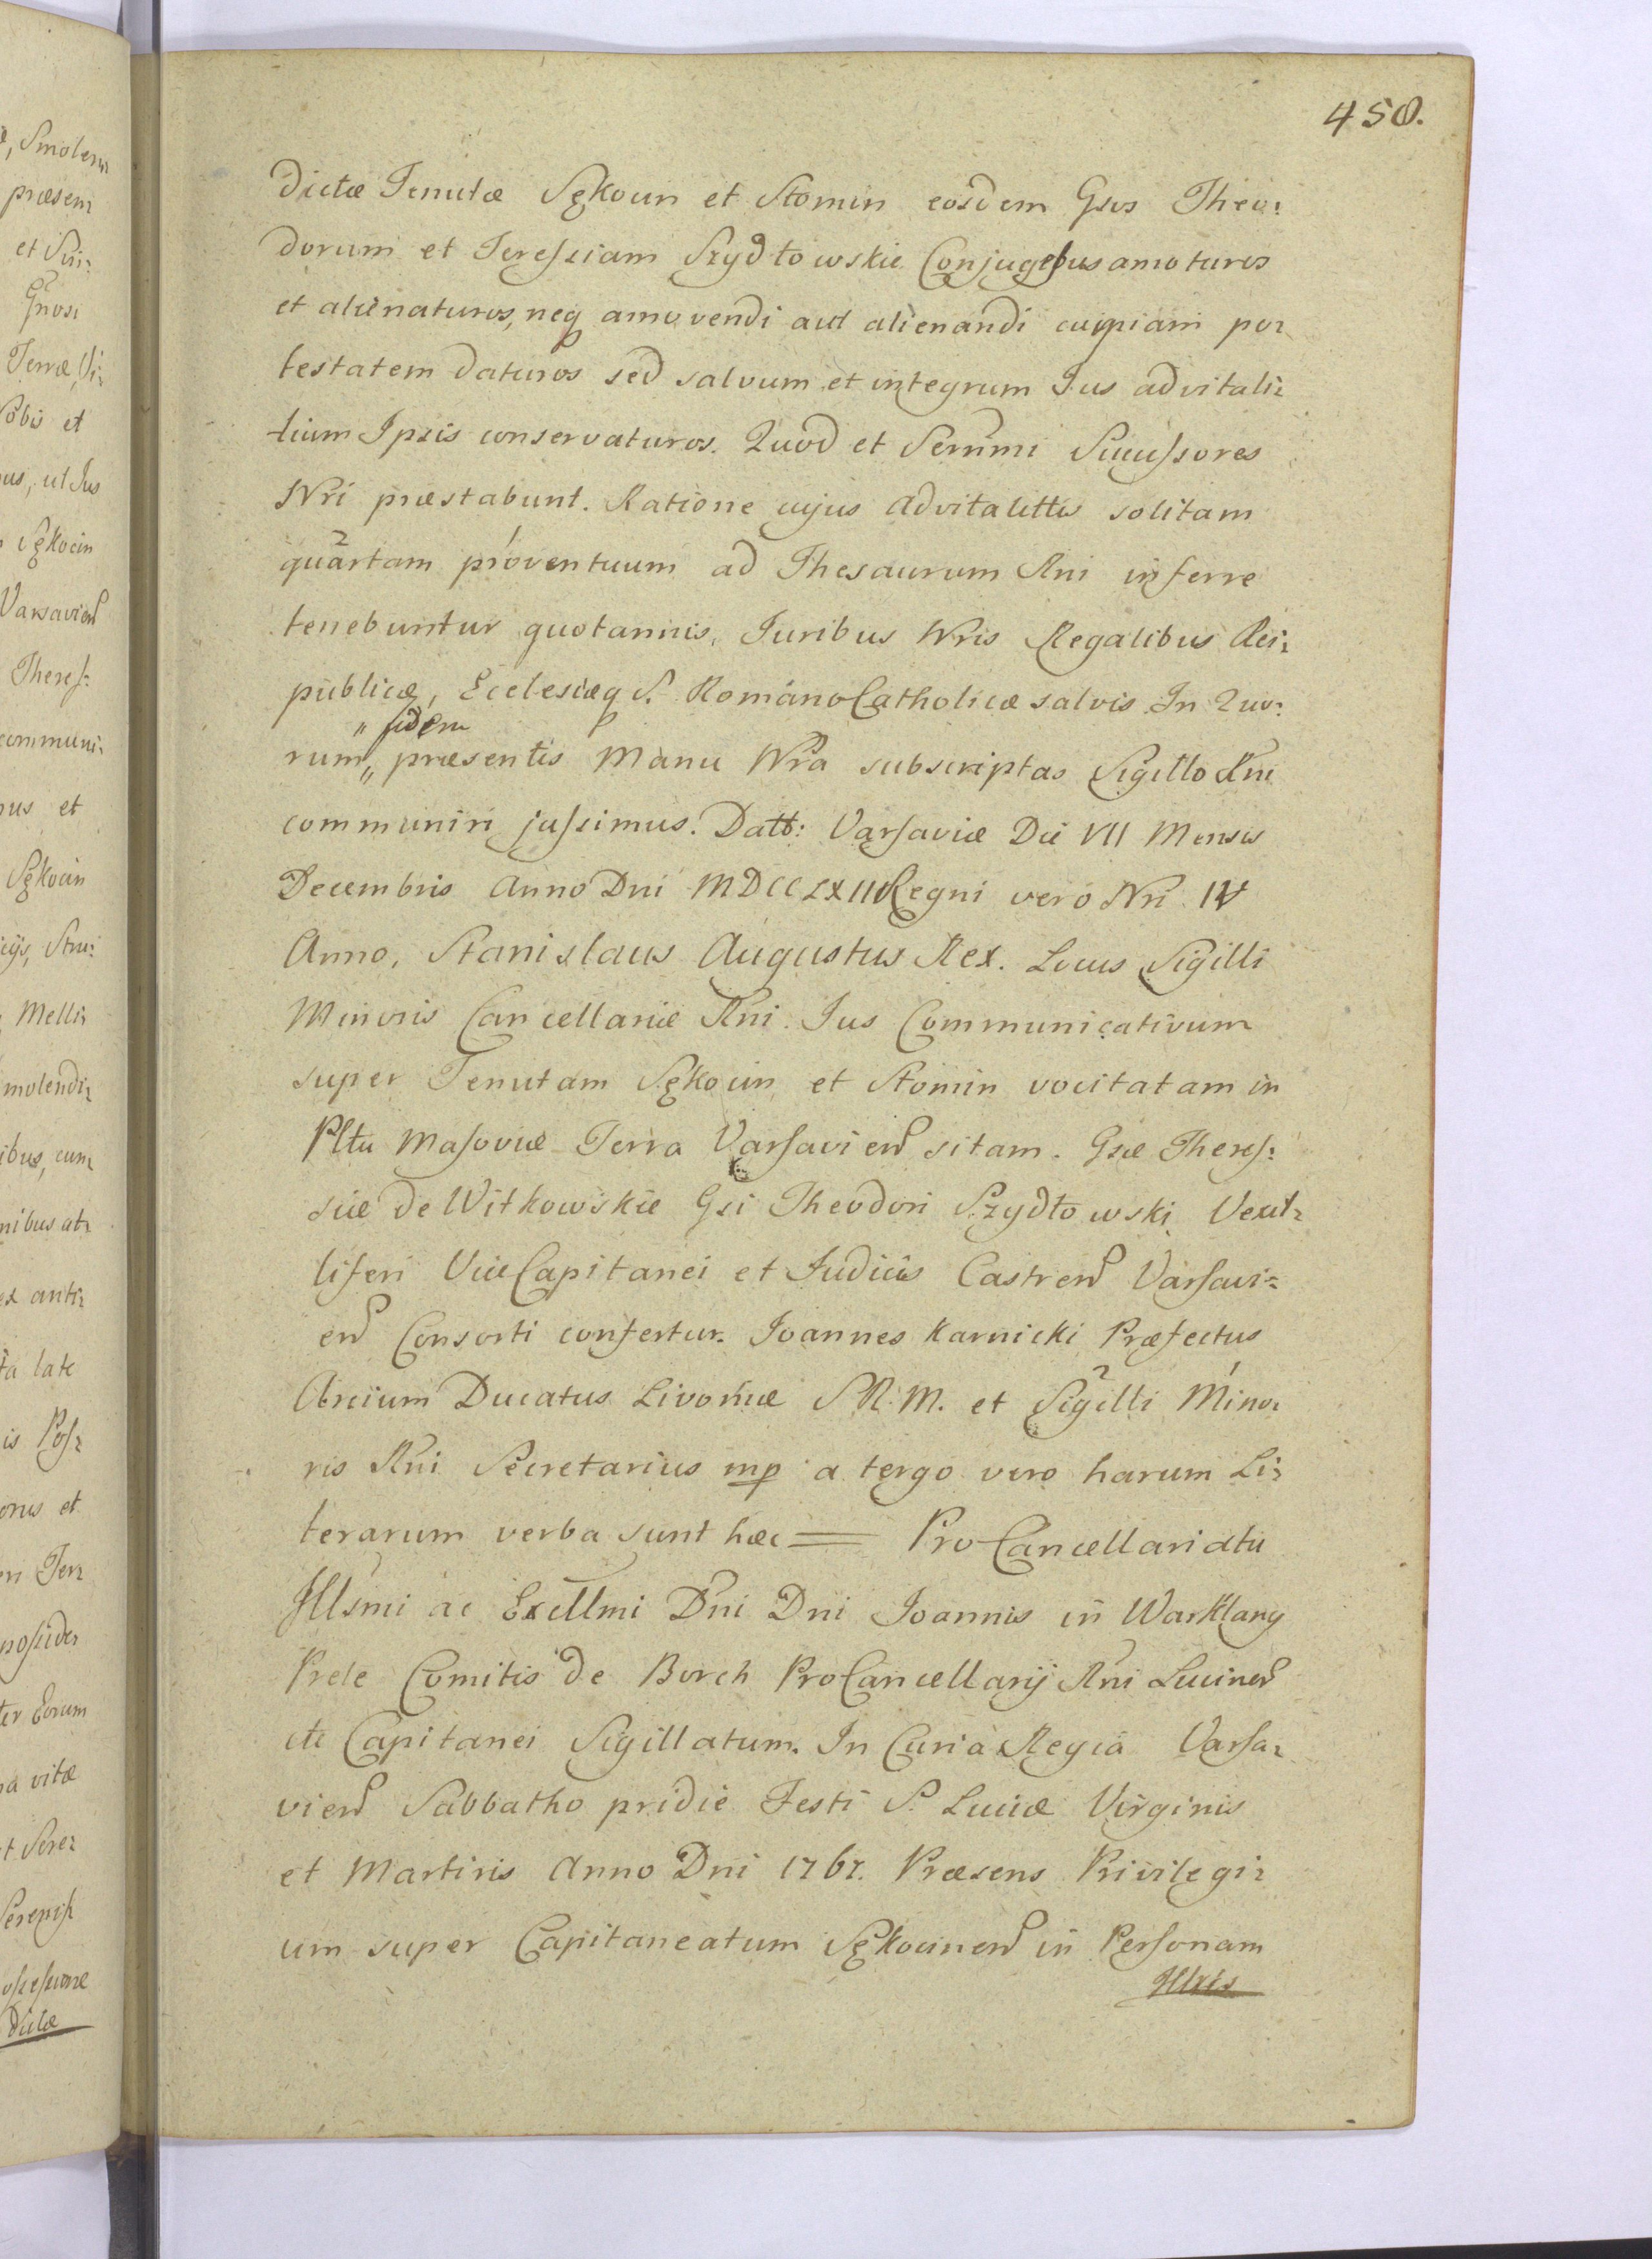 450.
dictæ Tenutæ Sękocin et Słomin eosdem Gsos Theo:
dorum et Teressiam Szydłowskie Conjuges amoturos
et alienaturos, neq amovendi aut alienandi cuipiam po:
testatem daturos sed salvum et integrum Jus advitali:
tium Ipsis conservaturos. Quod et Sermi Successores
Nri præstabunt. Ratione cujus advitalittis solitam
quartam proventuum ad Thesaurum Rni inferre
tenebuntur quotannis. Juribus Nris Regalibus Rei:
publicæ, Ecclesiæq S. Romano Catholicæ salvis In Quo:
" fidem
rum „ præsentes Manu Nra subscriptas Sigillo Rni
communiri jussimus. Datt: Varsaviæ Die VII Mensis
Decembris Anno Dni MDCCLXVII Regni vero Nri IV
Anno, Stanislaus Augustus Rex. Locus Sigilli
Minoris Cancellariæ Rni. Jus Communicativum
super Tenutam Sękocin et Słomin vocitatam in
Pltu Masoviæ Terra Varsavien sitam. Gsæ Theres:
siæ de Witkowskie Gsi Theodori Szydłowski Vexil:
liferi ViceCapitanei et Judicis Castren Varsavi:
en Consorti confertur. Joannes Karnicki Præfectus
Arcium Ducatus Livoniæ S.R.M. et Sigilli Mino:
ris Rni Secretarius mp a tergo vero harum Li:
terarum verba sunt hæc = Pro Cancellariatu
Illsmi ac Excllmi Dni Dni Joannis in Warklany
Prele Comitis de Borch ProCancellarij Rni Lucinen
etc Capitanei Sigillatum. In Curia Regia Varsa:
vien Sabbatho pridie Festi S. Luciæ Virginis
et Martiris Anno Dni 1767. Præsens Privilegi:
um super Capitaneatum Sękocinen in Personam
Illris